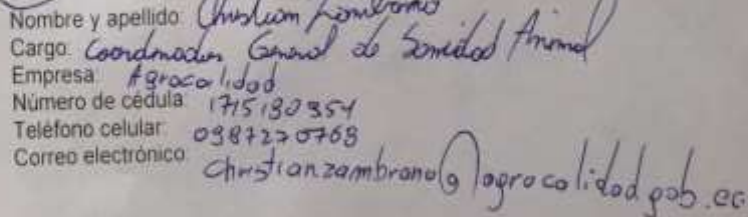 Nombre y apellido: Christian Zambrano
Cargo: Coordinador General de Sanidad Animal
Empresa: Agrocalidad
Número de cédula: 1715130954
Teléfono celular: 0987270763
Correo electrónico: christianzambrano@agrocalidad.gob.ec